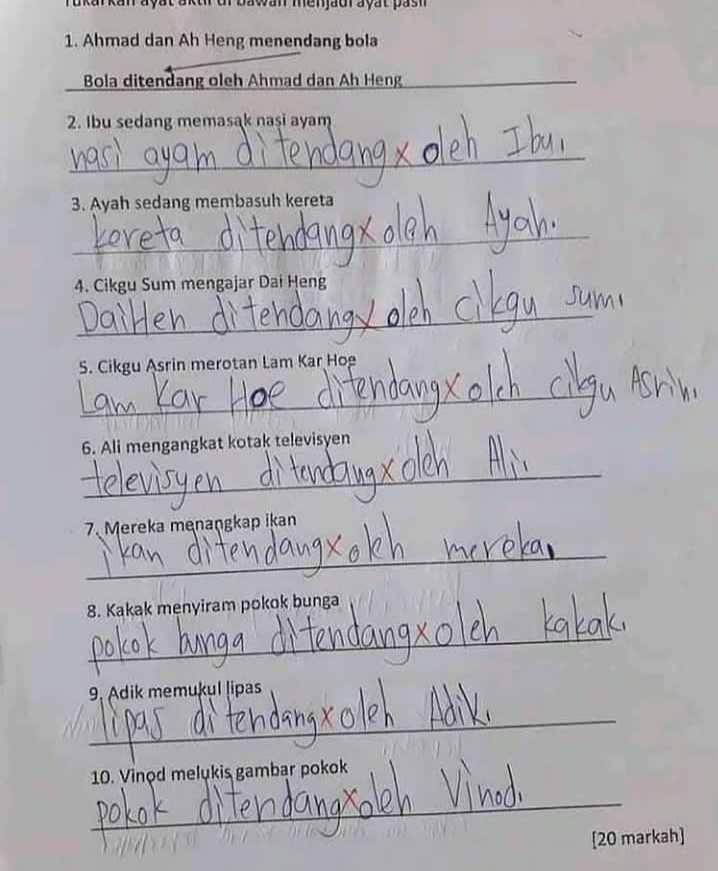 Tukarkan ayat aktif di bawah menjadi ayat pasif
1. Ahmad dan Ah Heng menendang bola
Bola ditendang oleh Ahmad dan Ah Heng
2. Ibu sedang memasak nasi ayam
nasi ayam ditendang x oleh Ibu.
3. Ayah sedang membasuh kereta
kereta ditendang x oleh Ayah.
4. Cikgu Sum mengajar Dai Heng
DaiHen ditendang x oleh cikgu sum.
5. Cikgu Asrin merotan Lam Kar Hoe
Lam Kar Hoe ditendang x oleh cikgu Asrin.
6. Ali mengangkat kotak televisyen
televisyen ditendang x oleh Ali.
7. Mereka menangkap ikan
ikan ditendang x oleh mereka.
8. Kakak menyiram pokok bunga
pokok bunga ditendang x oleh kakak.
9. Adik memukul lipas
lipas ditendang x oleh Adik.
10. Vinod melukis gambar pokok
pokok ditendang x oleh Vinod.
[20 markah]